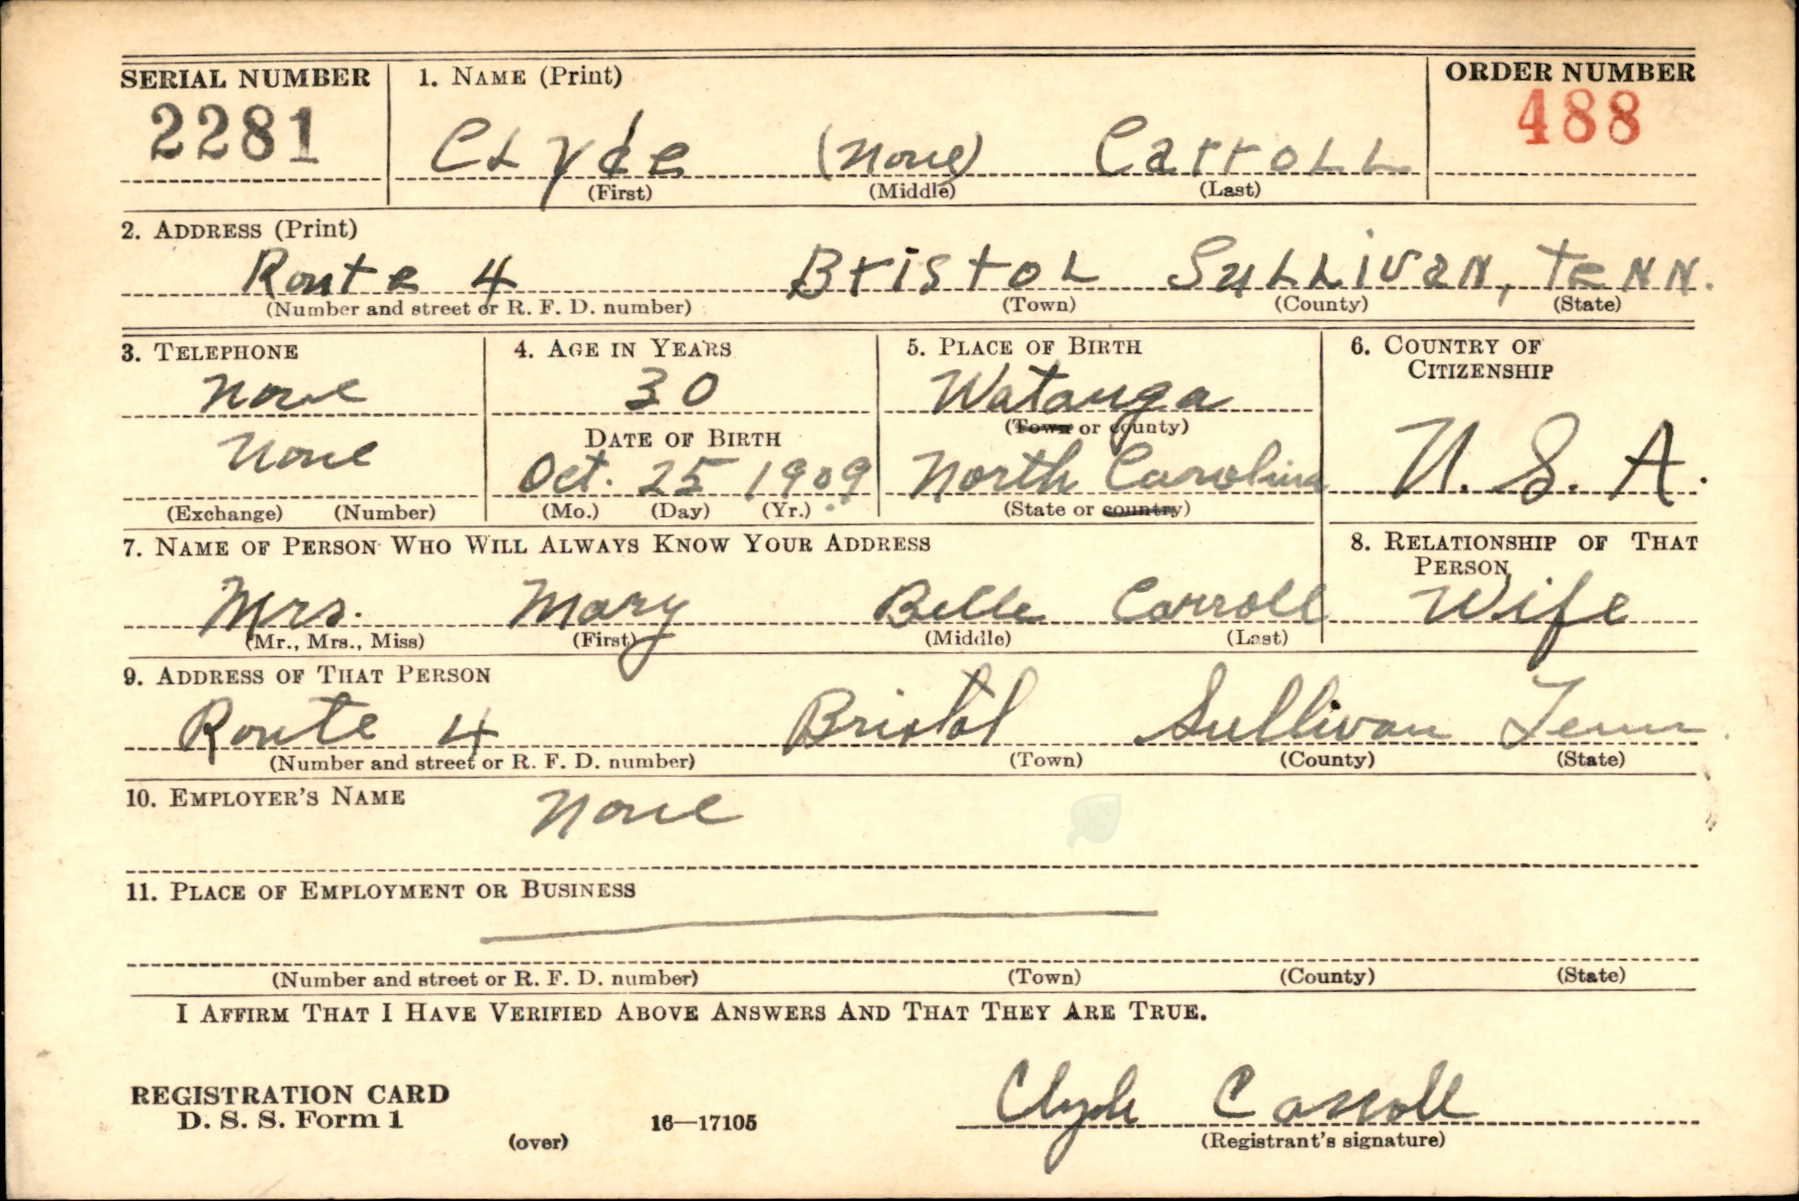 SERIAL NUMBER 1. NAME (Print) ORDER NUMBER
2281 Clyde (None) Carroll 488
(First) (Middle) (Last)
2. ADDRESS (Print)
Route 4 Bristol Sullivan, Tenn.
(Number and street or R. F. D. number) (Town) (County) (State)
3. TELEPHONE 4. AGE IN YEARS 5. PLACE OF BIRTH 6. COUNTRY OF CITIZENSHIP
None 30 Watauga
(Town or county)
DATE OF BIRTH
None Oct. 25 1909 North Carolina U. S. A.
(Exchange) (Number) (Mo.) (Day) (Yr.) (State or country)
7. NAME OF PERSON WHO WILL ALWAYS KNOW YOUR ADDRESS 8. RELATIONSHIP OF THAT PERSON
Mrs. Mary Belle Carroll Wife
(Mr., Mrs., Miss) (First) (Middle) (Last)
9. ADDRESS OF THAT PERSON
Route 4 Bristol Sullivan Tenn
(Number and street or R. F. D. number) (Town) (County) (State)
10. EMPLOYER'S NAME
None
11. PLACE OF EMPLOYMENT OR BUSINESS
(Number and street or R. F. D. number) (Town) (County) (State)
I AFFIRM THAT I HAVE VERIFIED ABOVE ANSWERS AND THAT THEY ARE TRUE.
REGISTRATION CARD
D. S. S. Form 1 Clyde Carroll
(over) 16—17105 (Registrant's signature)